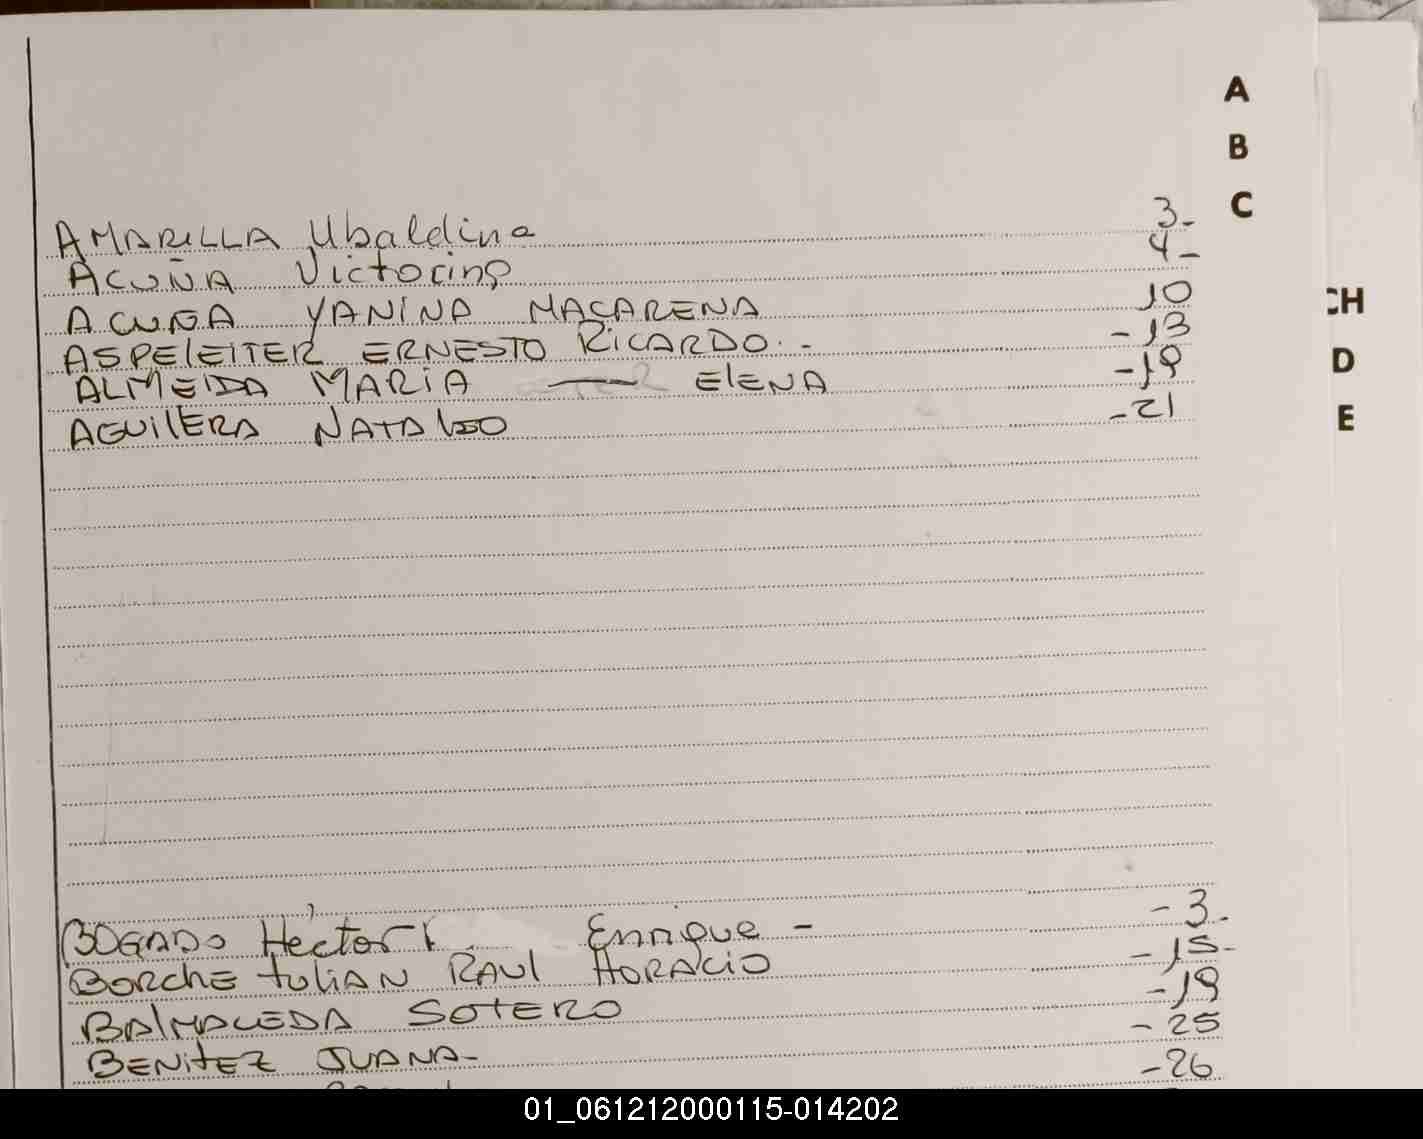 A
B
C
AMARILLA Ubaldina 3-
ACUÑA Victorino 4-
ACUÑA YANINA MACARENA 10
ASPELEITER ERNESTO RICARDO.- -13
ALMEIDA MARIA — ELENA -19
AGUILERA NATALIO -21
CH
D
E
BOGADO Héctor Enrique - -3-
BORCHE JULIAN RAUL HORACIO -15-
BALMACEDA SOTERO -19
BENITEZ JUANA- -25
-26
01_061212000115-014202